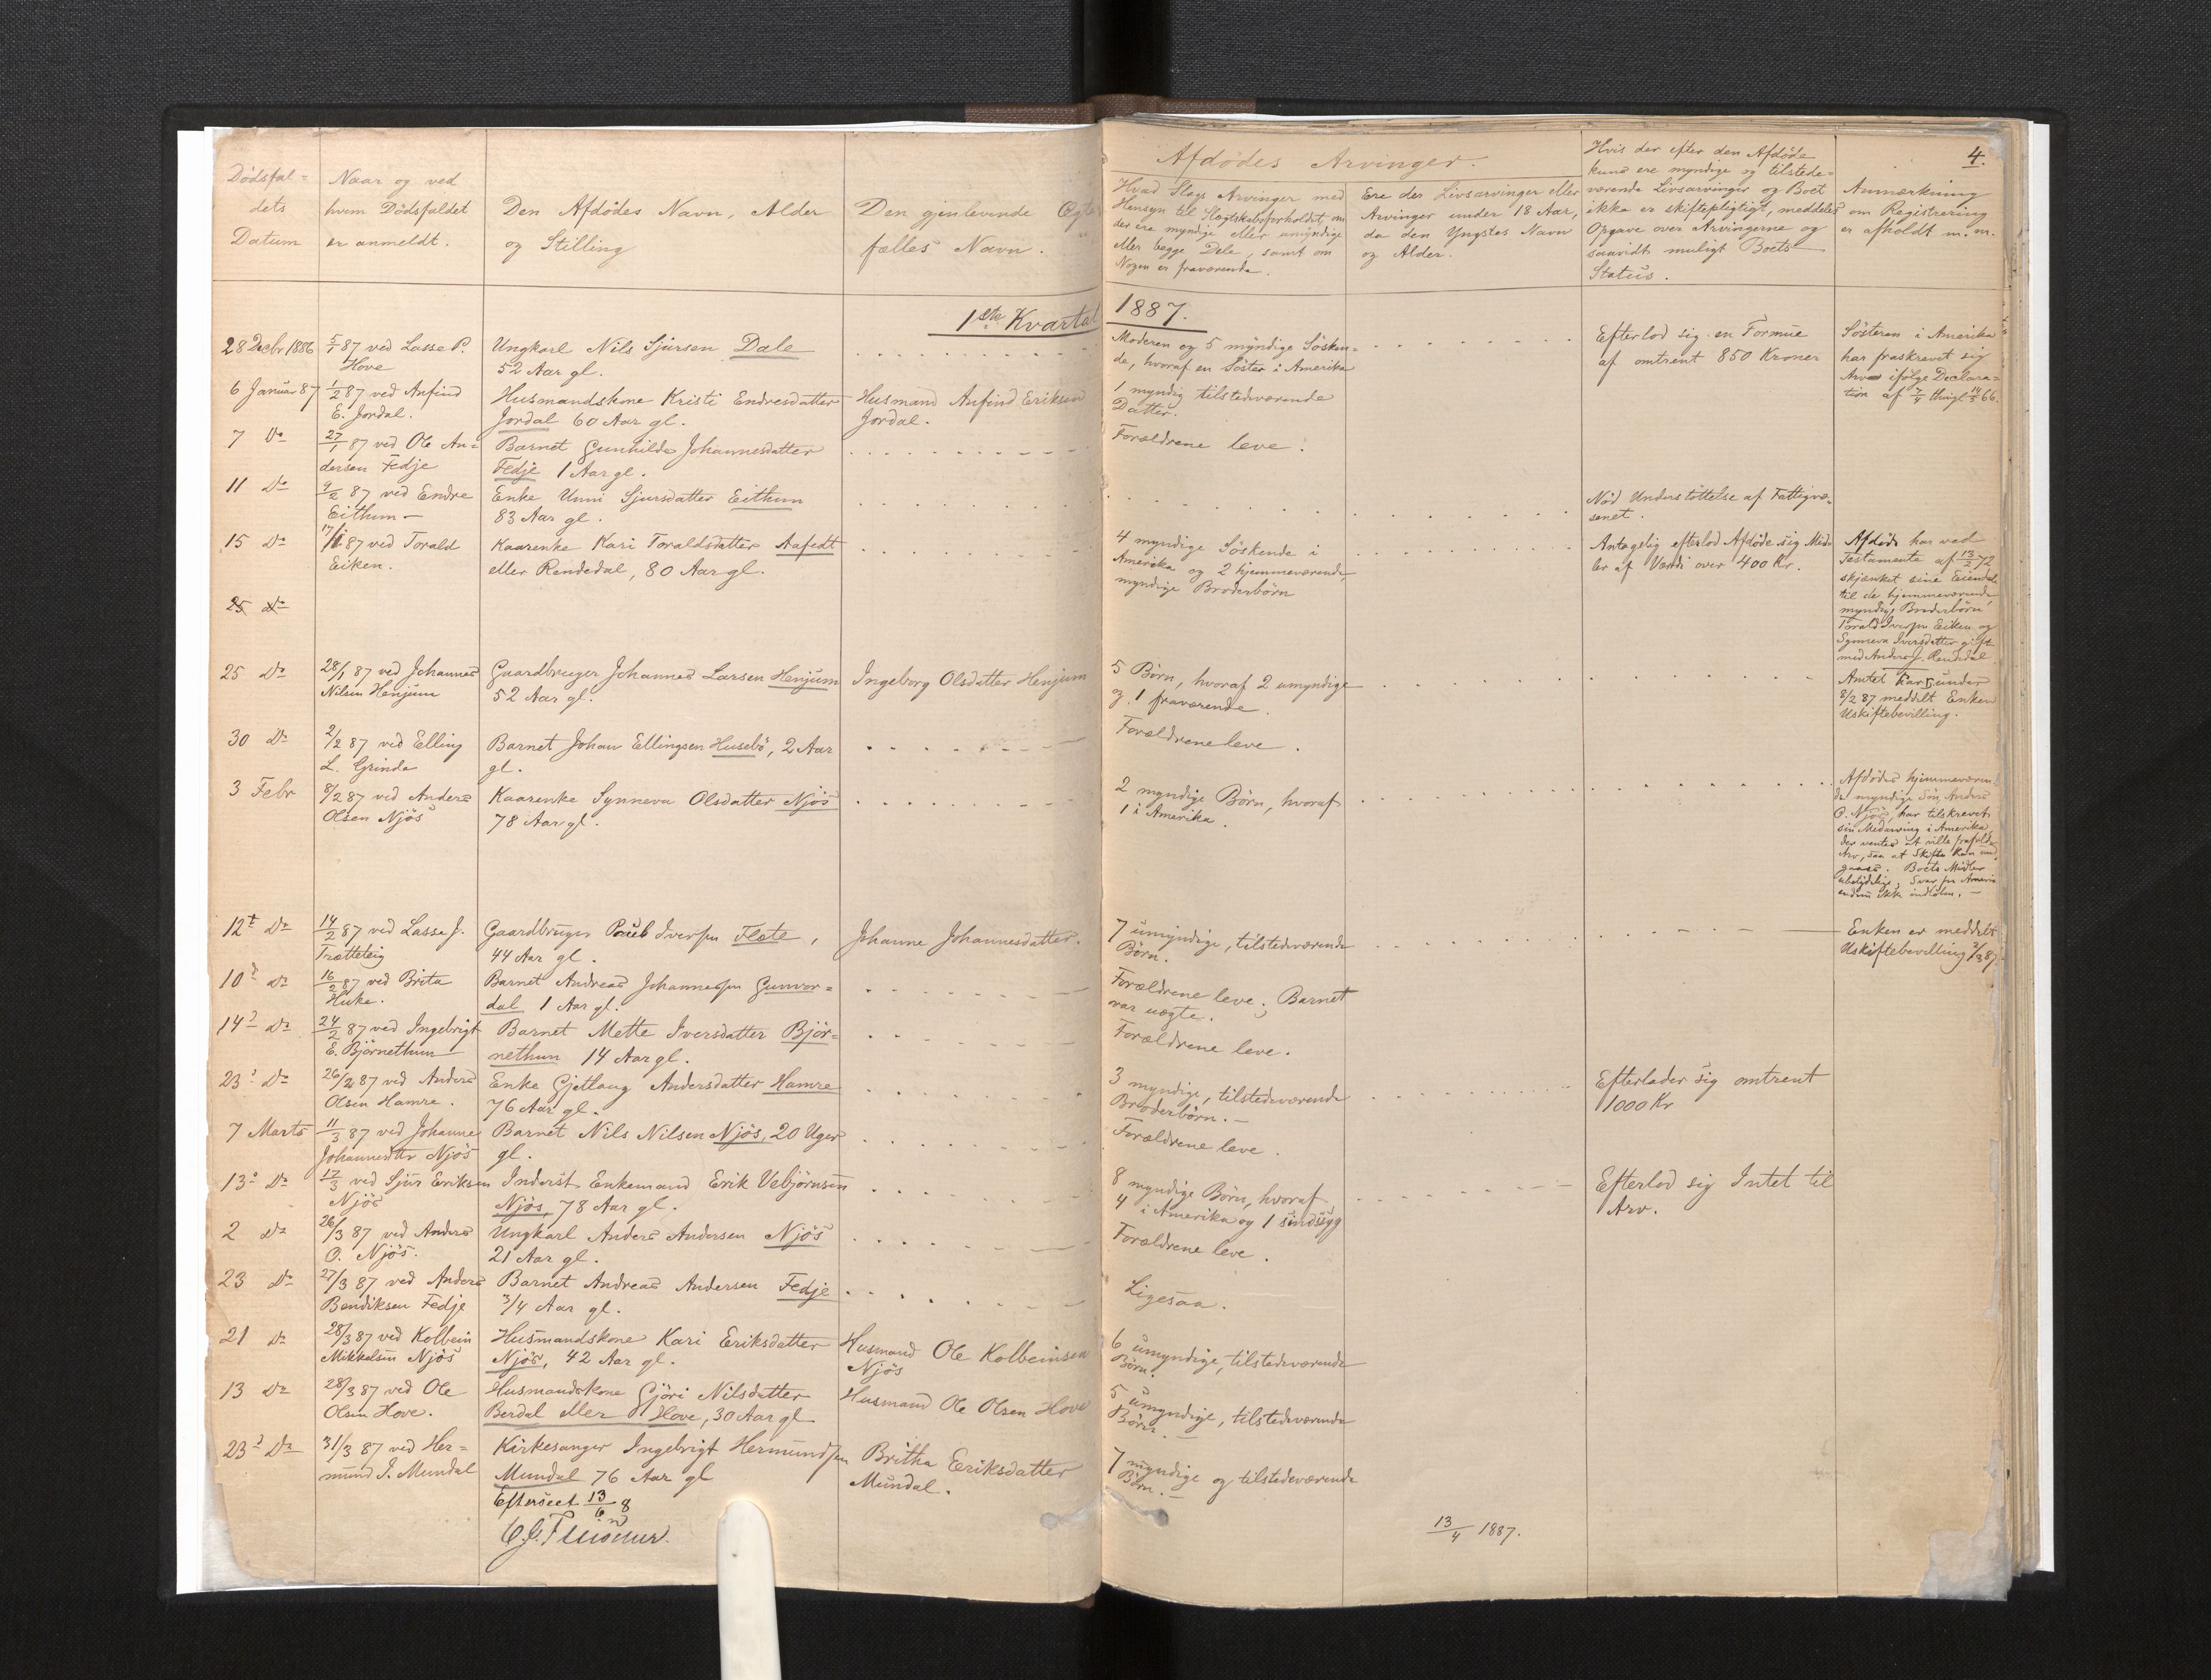 4.
Dödsfal=
dets
Datum
Naar og ved
hvem Dödsfaldet
er anmeldt.
Den Afdödes Navn, Alder
og Stilling
Den gjenlevende Ægte
fælles Navn.
Afdödes Arvinger.
Hvad Slags Arvinger med
Hensyn til Slægtskabsforholdet, om
der ere myndige eller umyndige
eller begge Dele, samt om
Nogen er fraværende.
Ere der Livsarvinger eller
Arvinger under 18 Aar,
da den Yngstes Navn
og Alder.
Hvis der efter den Afdöde
kuns ere myndige og tilstede=
værende Livsarvinger og Boet
ikke er skiftepligtigt, meddeles
Opgave over Arvingerne og
saavidt muligt Boets
Status.
Anmærkning
om Registrering
er afholdt m.m.
1ste Kvartal 1887.
28 Decbr 1886
5/1 87 ved Lasse P.
Hove
Ungkarl Nils Sjursen Dale
52 Aar gl.
Moderen og 5 myndige Sösken=
de, hvoraf en Söster i Amerika
Efterlod sig en Formue
af omtrent 850 Kroner
Sösteren i Amerika
har fraskrevet sig
Arv ifölge Declara=
tion af 7/4 thingl. 14/5 66.
6 Januar 87
1/2 87 ved Anfind
E. Jordal.
Husmandskone Kristi Endresdatter
Jordal 60 Aar gl.
Husmand Anfind Eriksen
Jordal.
1 myndig tilstedværende
Datter.
7 Do
27/1 87 ved Ole An=
dersen Fedje
Barnet Gunhilde Johannesdatter
Fedje 1 Aar gl.
Forældrene leve.
11 Do
9/2 87 ved Endre
Eithum
Enke Unni Sjursdatter Eithum
83 Aar gl.
Nöd Understöttelse af Fattigvæ=
senet.
15 Do
17/1 87 ved Torald
Eiken.
Kaarenke Kari Toraldsdatter Aafedt
eller Rendedal, 80 Aar gl.
4 myndige Söskende i
Amerika og 2 hjemmeværende,
myndige Broderbörn
Antagelig efterlod Afdöde sig Mid=
ler af Værdi over 400 Kr.
Afdöde har ved
Testamente af 13/2 72
skjænket sine Eiendele
til de hjemmeværende
myndige Broderbörn
Torald Iversen Eiken og
Synneva Iversdatter gift
med Anders J. Rendedal
25 Do
25 Do
28/1 87 ved Johannes
Nilsen Henjum
Gaardbruger Johannes Larsen Henjum
52 Aar gl.
Ingeborg Olsdatter Henjum
5 Börn, hvoraf 2 umyndige
og 1 fraværende.
Amtet har under
8/2 87 meddelt Enken
Uskiftebevilling.
30 Do
2/2 87 ved Elling
L. Grinde
Barnet Johan Ellingsen Husebö, 2 Aar
gl.
Forældrene leve.
3 Febr
8/2 87 ved Anders
Olsen Njös
Kaarenke Synneva Olsdatter Njös
78 Aar gl.
2 myndige Börn, hvoraf
1 i Amerika.
Afdödes hjemmeværen=
de myndige Sön, Anders
O. Njös, har tilskrevet
sin Medarving i Amerika,
der ventes at ville frafalde
Arv, saa at Skifte kan und=
gaaes. Boets Midler
ubetydelige. Svar fra Amerika
endnu ikke indlöben.
12t Do
14/2 87 ved Lasse J.
Trætteteig
Gaardbruger Poul Iversen Flete,
44 Aar gl.
Johanne Johannesdatter.
7 umyndige, tilstedværende
Börn.
Enken er meddelt
Uskiftebevilling 2/3 87
10d Do
16/2 87 ved Brita
Huke.
Barnet Andreas Johannessen Gunvor=
dal 1 Aar gl.
Forældrene leve; Barnet
var uægte.
14d Do
24/2 87 ved Ingebrigt
E. Björnethum
Barnet Mette Iversdatter Björ=
nethun 14 Aar gl.
Forældrene leve.
23d Do
26/2 87 ved Anders
Olsen Hamre.
Enke Gjetlaug Andersdatter Hamre
76 Aar gl.
3 myndige, tilstedeværende
Broderbörn.
Efterlader sig omtrent
1000 Kr
7 Marts
11/3 87 ved Johanne
Johannesdtr Njös
Barnet Nils Nilsen Njös, 20 Uger
gl.
Forældrene leve.
13d Do
17/3 ved Sjur Eriksen
Njös
Inderst Enkemand Erik Vebjörnsen
Njös, 78 Aar gl.
8 myndige Börn, hvoraf
4 i Amerika og 1 sindssyg
Efterlod sig Intet til
Arv.
2 Do
26/3 87 ved Anders
O. Njös.
Ungkarl Anders Andersen Njös
21 Aar gl.
Forældrene leve.
23 Do
27/3 87 ved Anders
Bendiksen Fedje
Barnet Andreas Andersen Fedje
3/4 Aar gl.
Ligesaa.
21 Do
28/3 87 ved Kolbein
Mikkelsen Njös
Husmandskone Kari Eriksdatter
Njös, 42 Aar gl.
Husmand Ole Kolbeinsen
Njös
6 umyndige, tilstedeværende
Börn.
13 Do
28/3 87 ved Ole
Olsen Hove.
Husmandskone Gjöri Nilsdatter
Berdal eller Hove, 30 Aar gl
Husmand Ole Olsen Hove
5 umyndige, tilstedeværende
Börn.
23d Do
31/3 87 ved Her=
mund I. Mundal
Kirkesanger Ingebrigt Hermundsen
Mundal 76 Aar gl
Britha Eriksdatter
Mundal.
7 myndige og tilstedeværende
Börn.
Efterseet 13/6 8
13/4 1887.